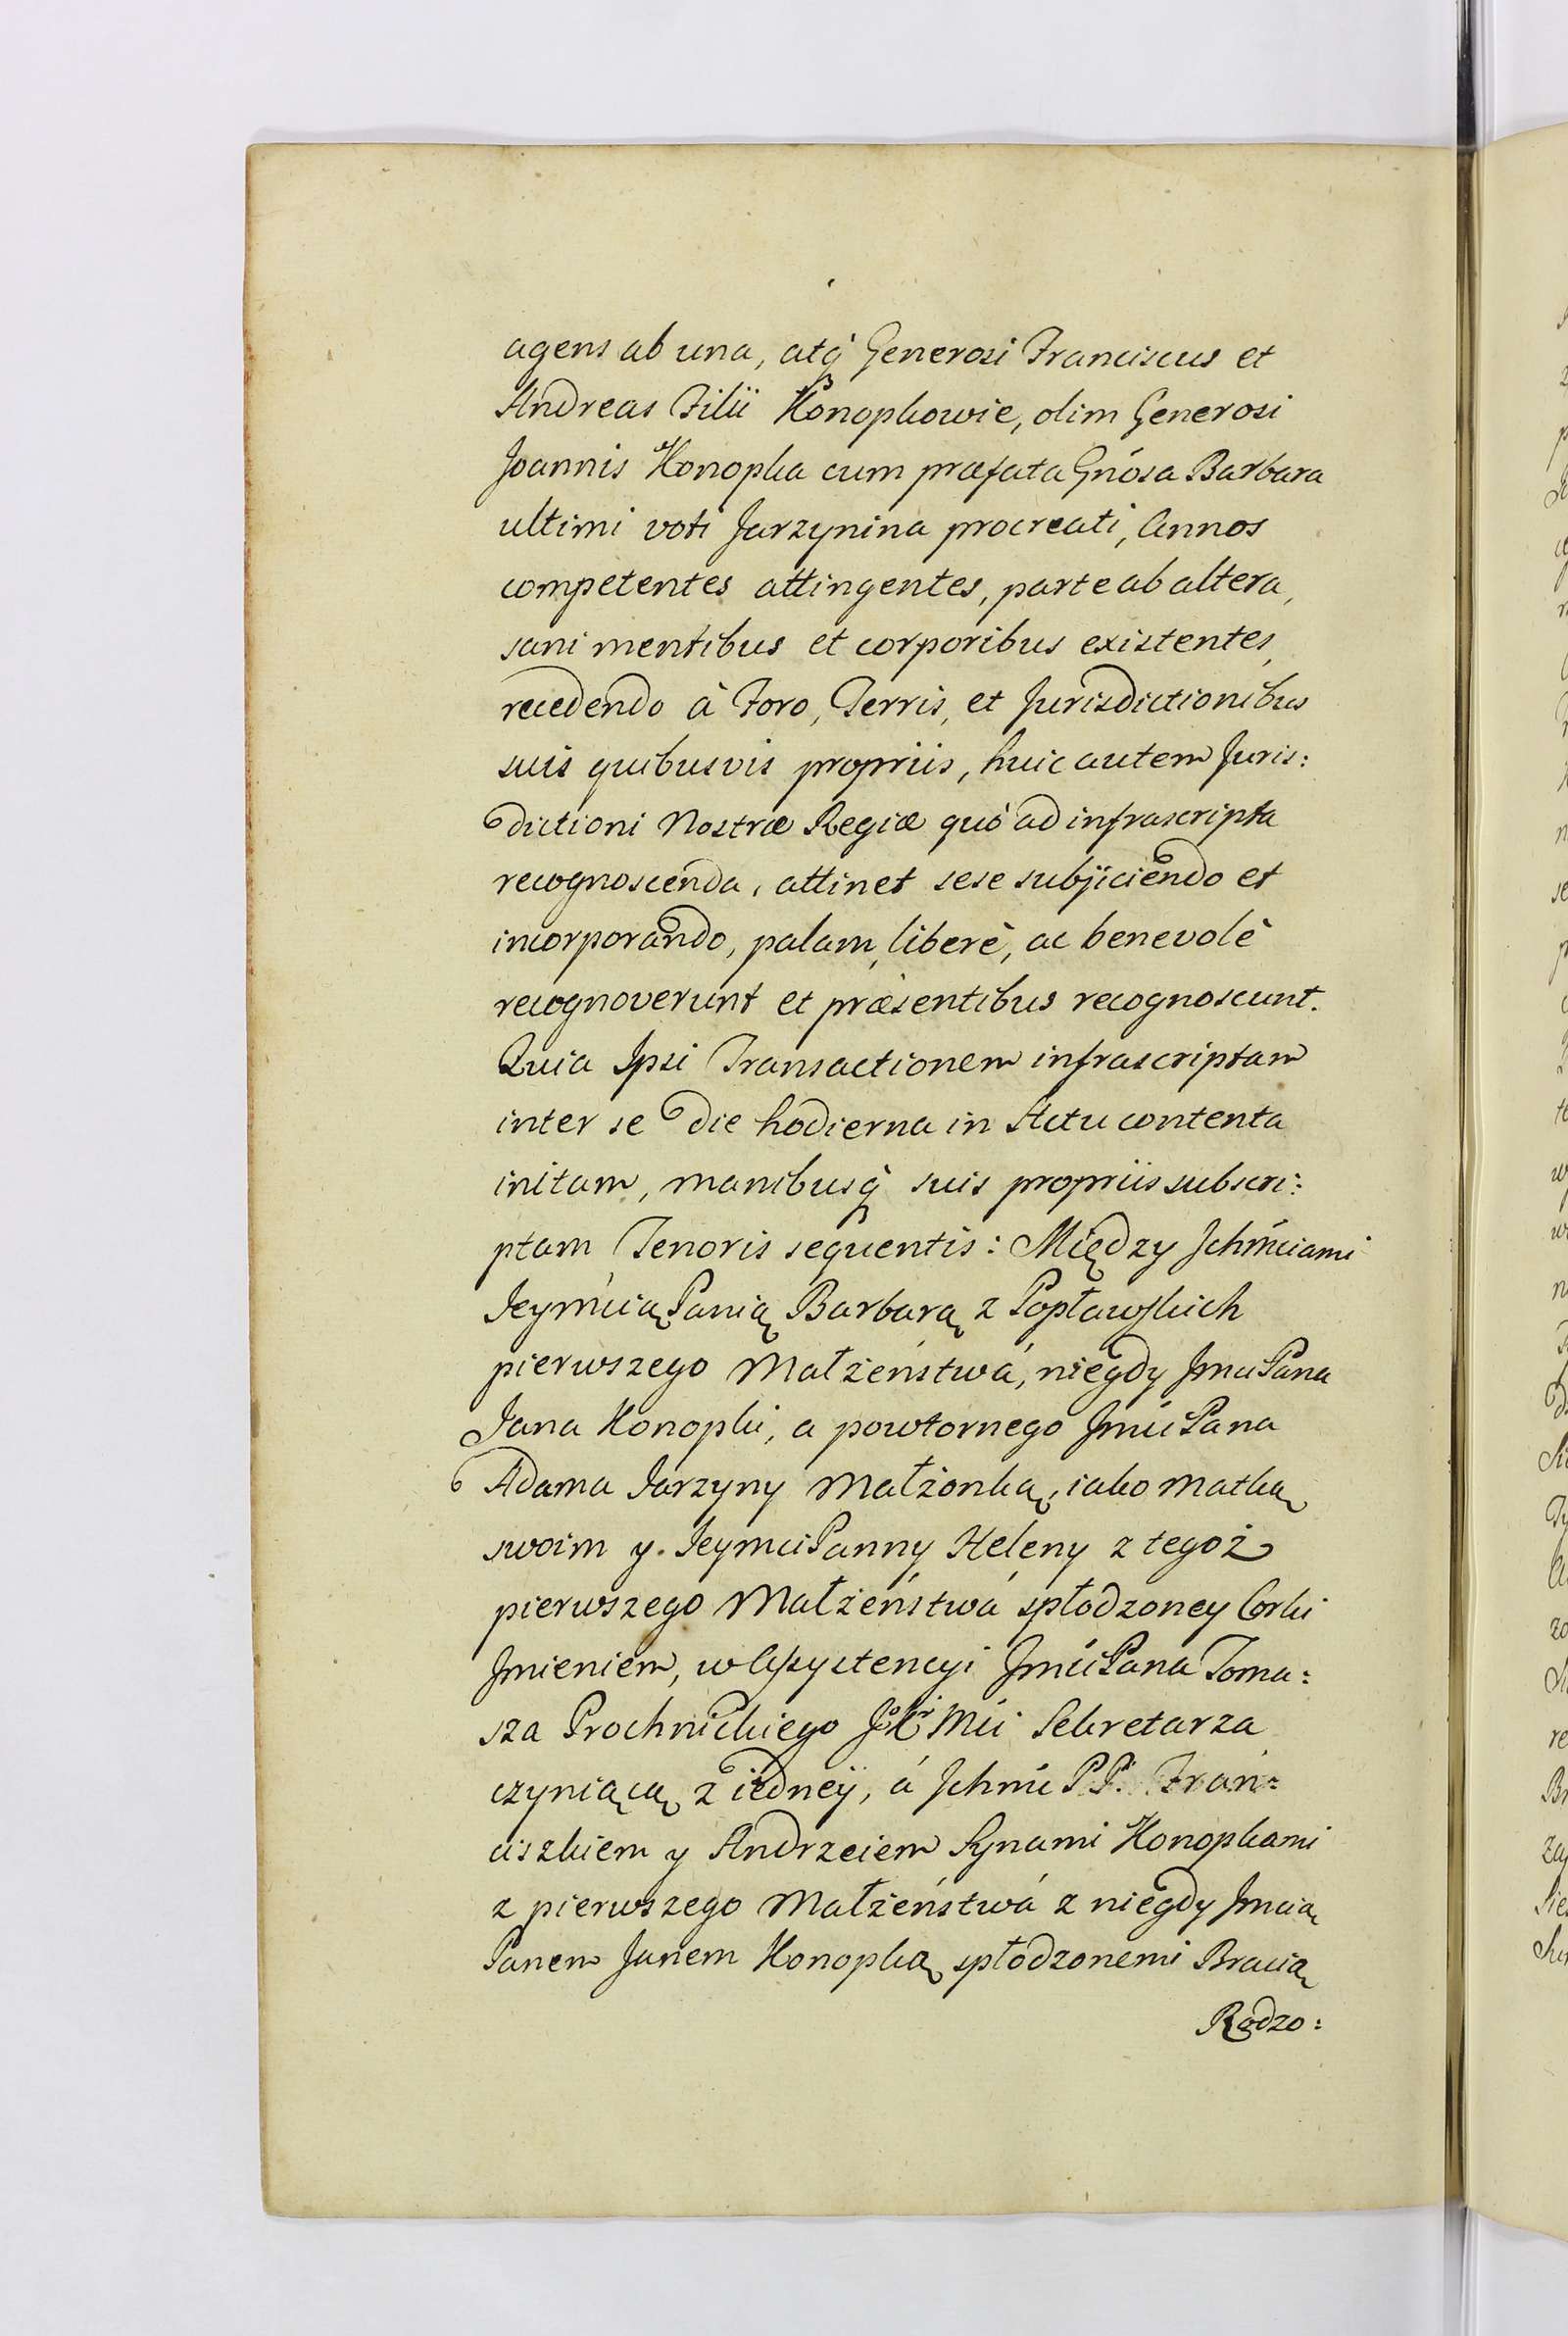 agens ab una, atq̀ Generosi Franciscus et
Andreas Filii Konopkowie, olim Generosi
Joannis Konopka cum præfata Gnósa Barbara
ultimi voti Jarzynina procreati, Annos
competentes attingentes, parte ab altera,
sani mentibus et corporibus existentes,
recedendo à Foro, Terris, et Jurisdictionibus
suis quibusvis propriis, huic autem Juris:
dictioni Nostræ Regiæ quò ad infrascripta
recognoscenda, attinet sese subjiciendo et
incorporando, palam, liberè, ac benevolè
recognoverunt et præsentibus recognoscunt.
Quia Ipsi Transactionem infrascriptam
inter se die hodierna in Actu contenta
initam, manibusq̀ suis propriis subscri:
ptam Tenoris sequentis: Między Jchmciami
Jeymcią Panią Barbarą z Popławskich
pierwszego Małżeństwá, niegdy Jmci Pana
Jana Konopki, a powtornego Jmći Pana
Adama Jarzyny Małżonką, iako Matką
swoim y Jeymci Panny Heleny z tegoż
pierwszego Małżeństwá spłodzoney Corki
Jmieniem, w Assystencyi Jmći Pana Toma:
sza Prochnickiego JKr Mći Sekretarza
czyniącą z iedney, á Jchmć PP. Fran:
ciszkiem y Andrzeiem Synami Konopkami
z pierwszego Małżeństwá z niegdy Jmcią
Panem Janem Konopką spłodzonemi Bracią
Rodzo: